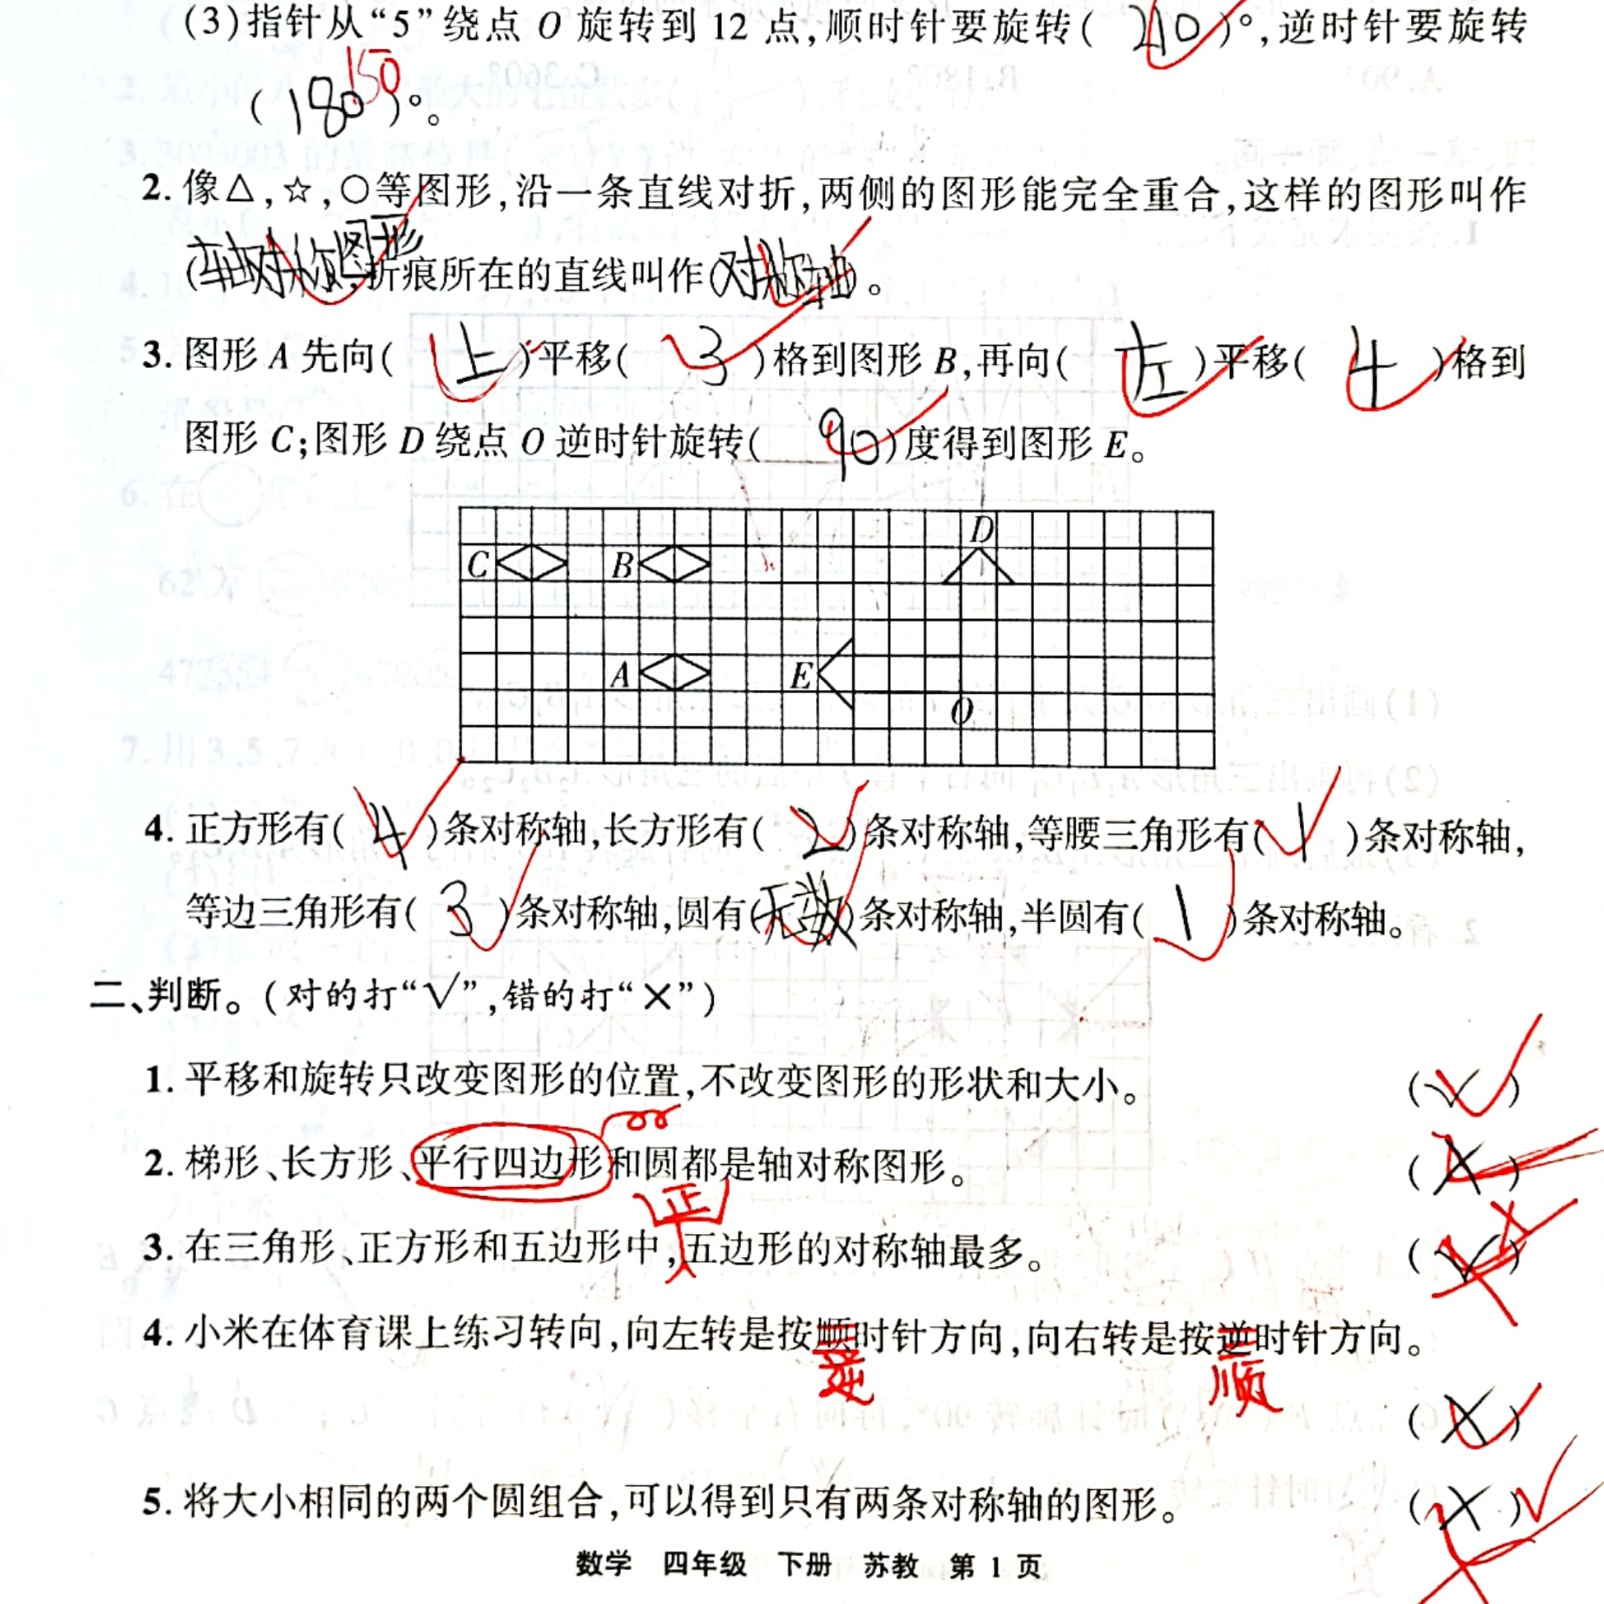 (3)指针从“5”绕点 O 旋转到 12 点,顺时针要旋转( 210 )°,逆时针要旋转
150
( 180 )°。
2. 像△,☆,○等图形,沿一条直线对折,两侧的图形能完全重合,这样的图形叫作
(轴对称图形),折痕所在的直线叫作(对称轴)。
3. 图形 A 先向( 上 )平移( 3 )格到图形 B,再向( 左 )平移( 4 )格到
图形 C;图形 D 绕点 O 逆时针旋转( 90 )度得到图形 E。
D
C B
A E
O
4. 正方形有( 4 )条对称轴,长方形有( 2 )条对称轴,等腰三角形有( 1 )条对称轴,
等边三角形有( 3 )条对称轴,圆有(无数)条对称轴,半圆有( 1 )条对称轴。
二、判断。(对的打“√”,错的打“×”)
1. 平移和旋转只改变图形的位置,不改变图形的形状和大小。 (√)
2. 梯形、长方形、平行四边形和圆都是轴对称图形。 (×)
正
3. 在三角形、正方形和五边形中,五边形的对称轴最多。 (√) ×
4. 小米在体育课上练习转向,向左转是按顺时针方向,向右转是按逆时针方向。
逆 顺
(×)
5. 将大小相同的两个圆组合,可以得到只有两条对称轴的图形。 (×) √
数学 四年级 下册 苏教 第 1 页